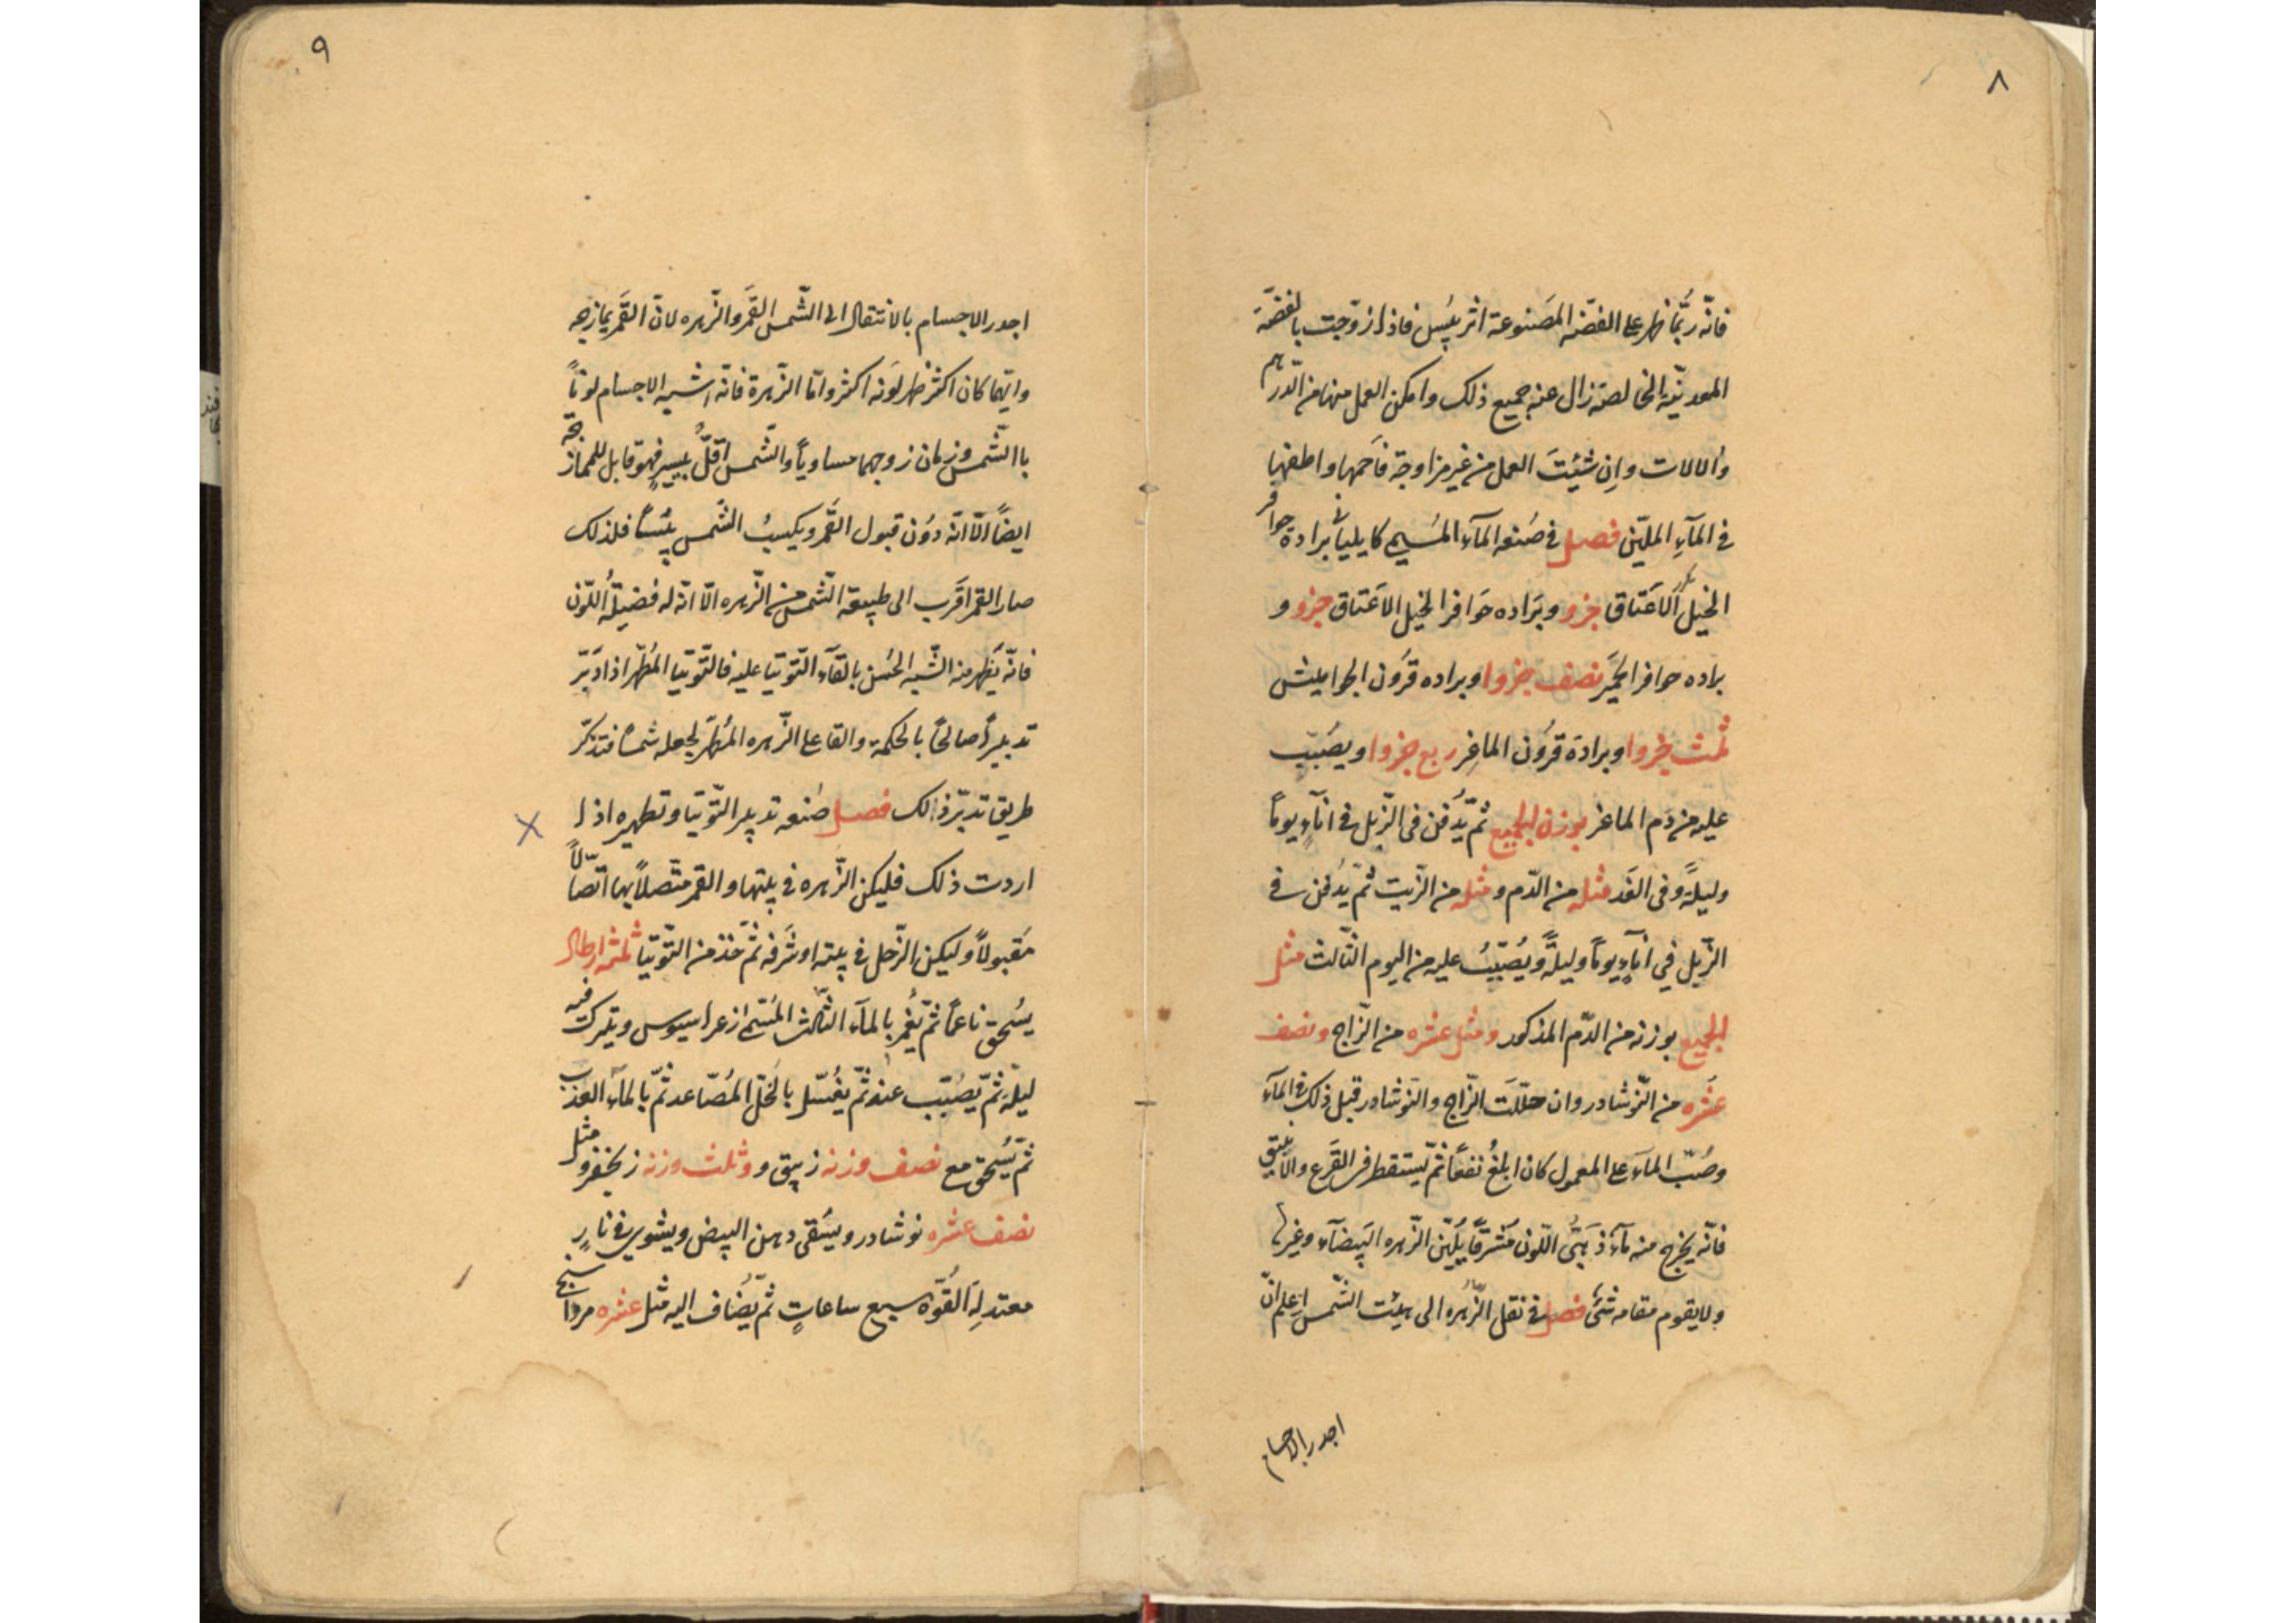 ٨
فانّه ربّما ظهر على الفضّه المَصنوعة اثر يبُس فاذا زوّجت بالفضّة
المعدنيّة الخالصة زال عنه جميع ذلك وامكن العمل منها من الدّراهم
والالات وان شئيتَ العمل من غير مزاوجة فاَحمها واطفها
فى المآءِ الملّين فصل فى صَنعه المآء المُسيح كايليانى برادة حوافر
الخيل الاعَتاق جزو وبَراده حَوافر الخيل الاعَتاق جزو و
براده حوافر الحمَير نصف جزوا وبراده قرَون الجواميش
ثمث جزوا وبرادة قرُون الماغِر ربع جزوا ويصُبّب
عليه من دَم الماغر بوزن الجميع ثمّ يُدفن فى الزّبل فى انآءٍ يوماً
وليلةً وفى الغَد مثله من الدّم ومثله من الزّيت ثمّ يدُفن فى
الزّبل في انآءٍ يوماً وليلةً ويُصَبّبُ عليه من اليوم الثّالث مثل
الجميع بوزنه من الدّم المذكور ومثل عشره من الزّاج ونصف
عَشره من النّوشادر وان حلّلتَ الزّاج والنوشادر قبل ذلك فى المآء
وصُبّ المآء على المعمول كان ابلغُ نفعاً ثمّ يستقطر فى القَرع والانبيق
فانّه يخرج منه مآء ذَهبّى اللّون مَشرقاً يُليّن الزّهره البَيضآء وغيرها
ولايقوم مقامه شئ فصل فى نقل الزّهره الى هيئت الشّمس اِعلم انّ
اجدر الاجسام
٩
اجدر الاجسام بالانتقال الى الشّمس القَمَر والزّهره لانّ القَمَر يمازجه
وايّهما كان اكثر ظهر لَونه اكثر وامّا الزّهرة فانّه اشبه الاجسام لوناً
باالشّمس وزمان زوجهما مساوياً والشّمس اقلّ بيسيرٍ فهو قابل للممازجة
ايضاً الّا انّه دوُن قبول القَمر ويكسبُ الشّمس يبُساً فلذلك
صار القمر اقَرب الى طبيعة الشّمس من الزّهره الّا انّه له فضيلةُ اللّون
فانّه يَظهر منه الشّبه الحُسن بالقآء التّوتيا عليه فالتّوتيا المُطهّر اذا دَبّر
تدبيراً صالحاً بالحكمة والقا على الزّهره المُطهّر لجعله شمساً فتذكّر
طريق تدبّر ذالك فصل صنعه تدبير التّوتيا وتطهيره اذا
اردت ذلك فليكن الزّهره فى بيتها والقمر متّصلاً بها اتّصالاً
مَقبولاً وليكن الزّحل فى بيته او شَرفه ثمّ خذ من التّوتيا ثلثه ارطال
يسُحق ناعماً ثمّ يغُمر بالمآء الثّالث المُسّمى ازعراسيوس ويترك فيه
ليلة ثمّ يصُبّب عنه ثمّ يغُسّل بالخَلّ المُصّاعد ثمّ بالمآء العَذب
ثمّ يسُحق مع نصف وزنه زيبق و وثلث وزنه زنجفر و مثل
نصف عشره نوشادر ويسَقى دهن البيض ويشوى فى نارٍ
معتدلِة القُوّه سبع ساعاتٍ ثمّ يضُاف اليه مثل عشره مرداسنج